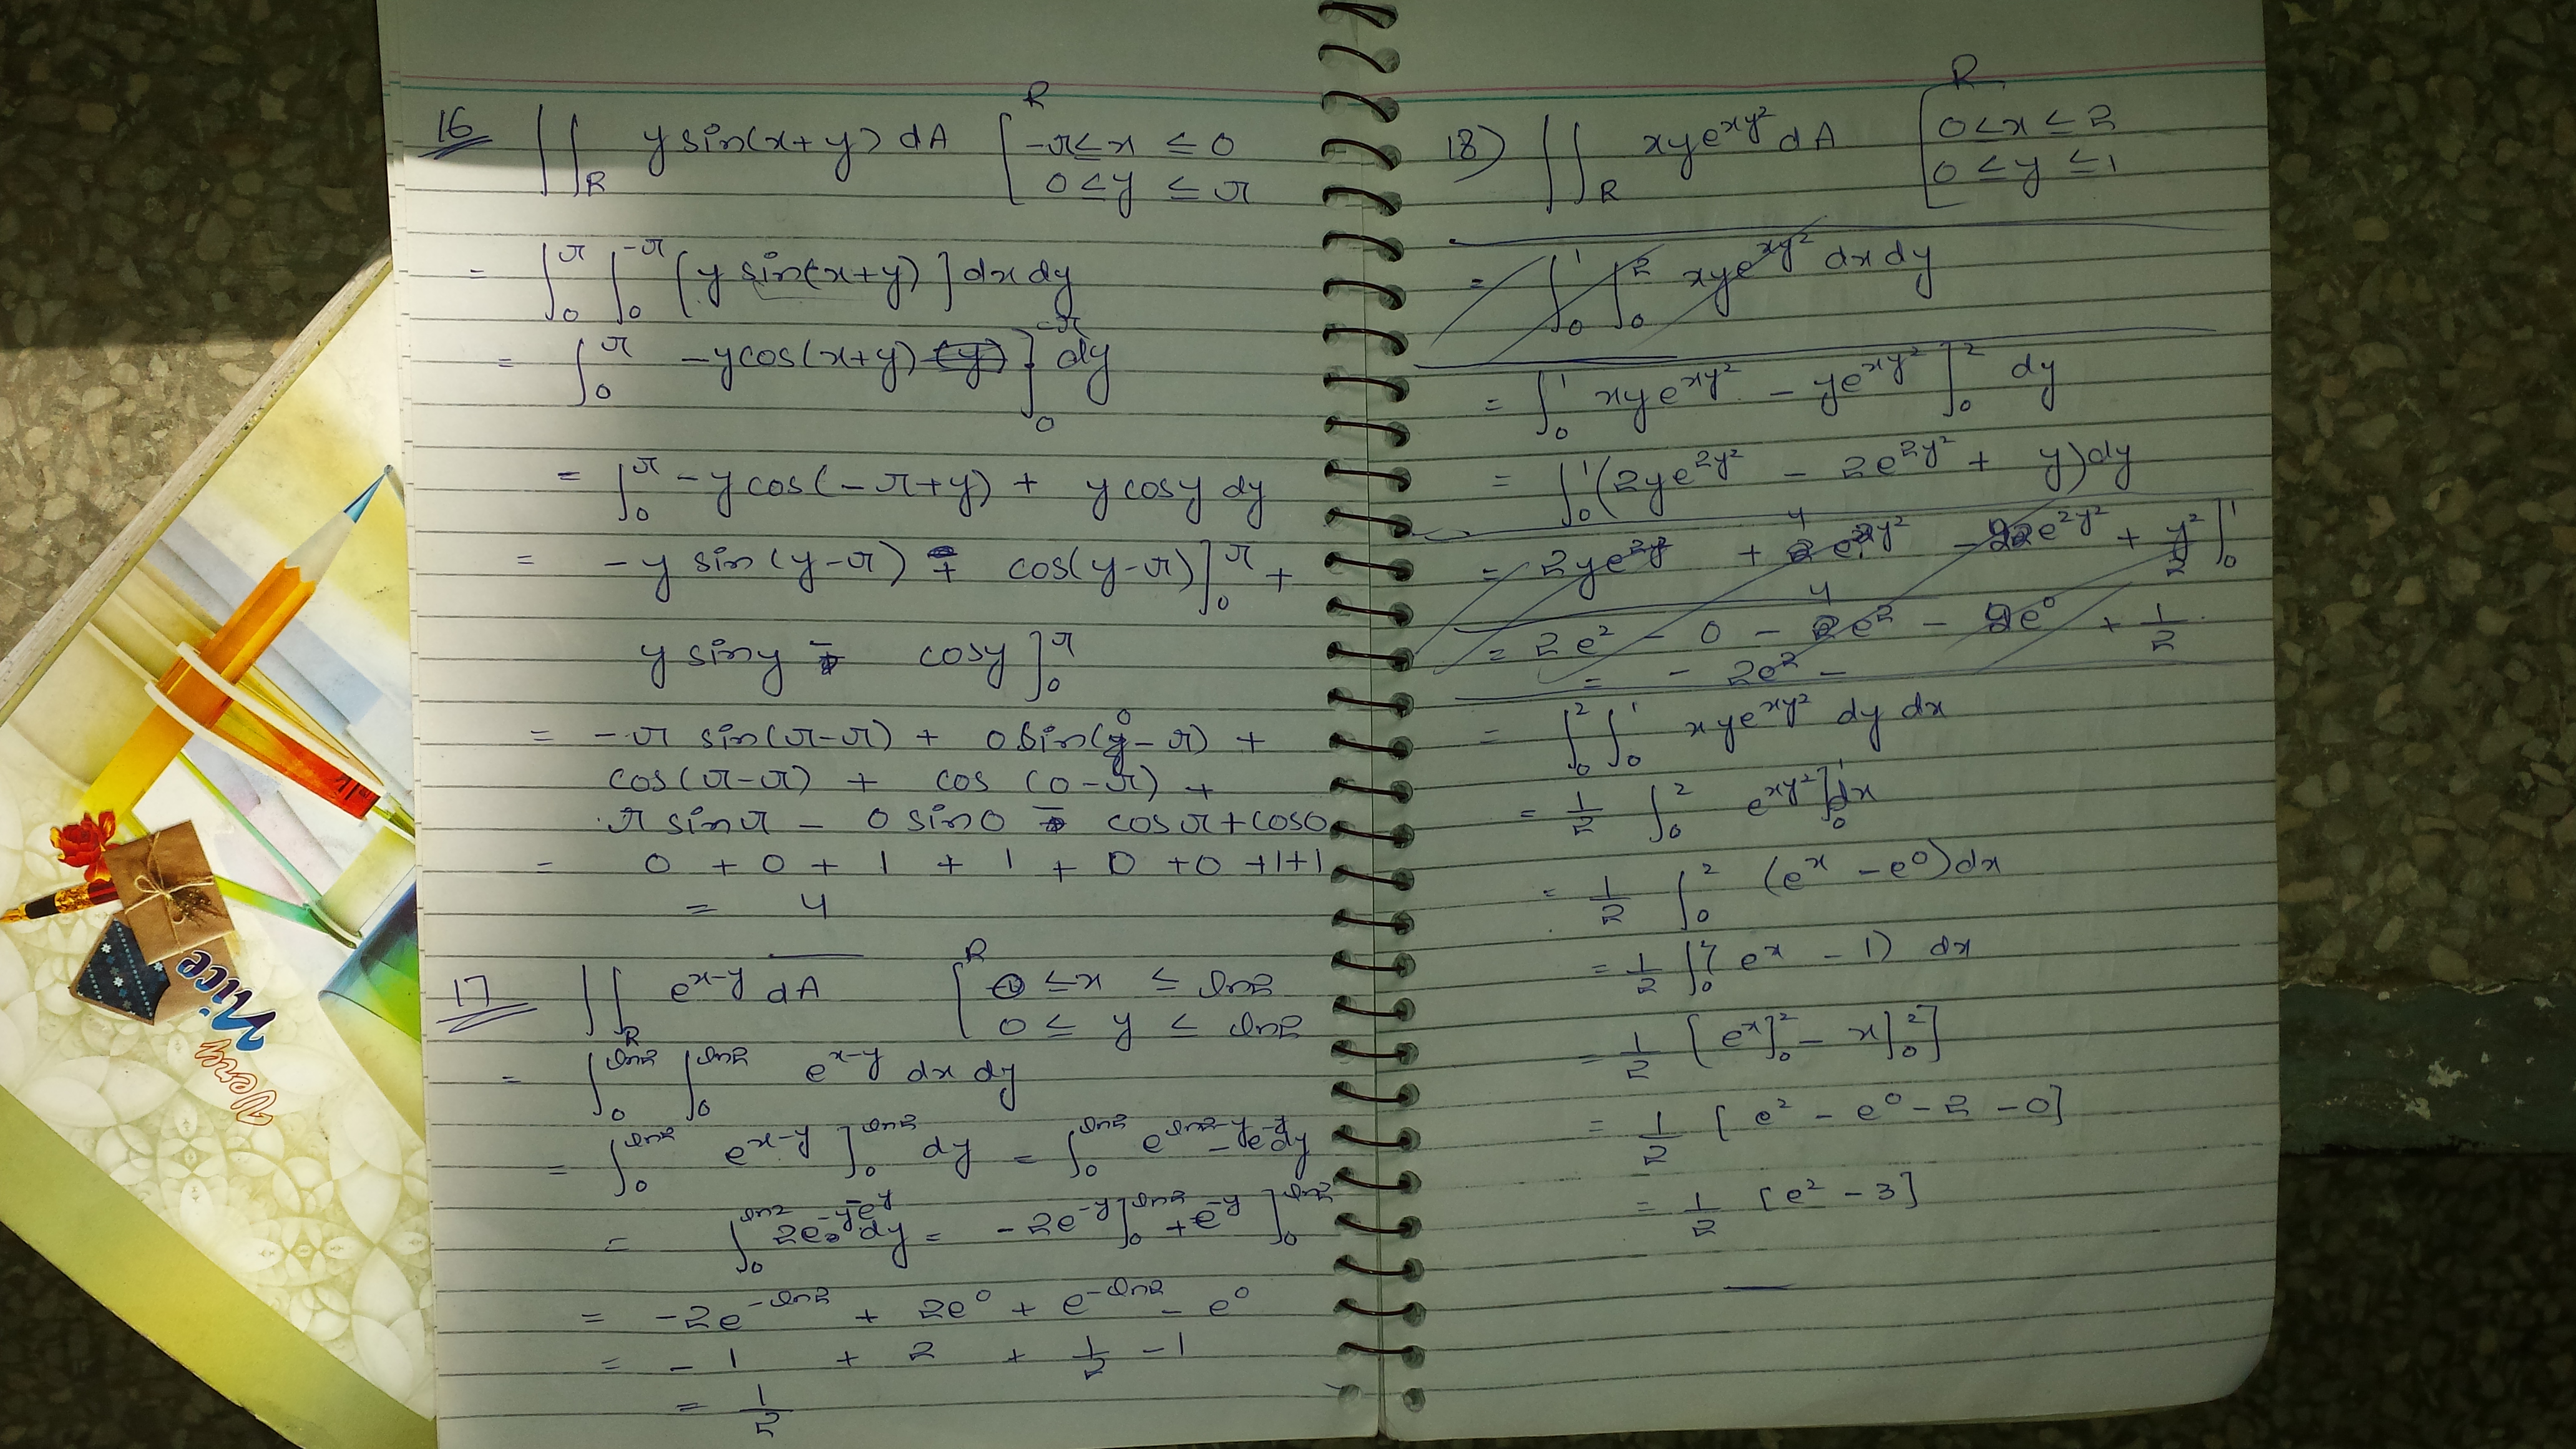 16 ∬_R y sin(x+y) dA [ R -π≤x ≤ 0
0≤y ≤ π
= ∫_0^π ∫_0^{-π} [y sin(x+y)] dx dy
= ∫_0^π -y cos(x+y) (y) ]_0^{-π} dy
= ∫_0^π -y cos(-π+y) + y cosy dy
= -y sin(y-π) + cos(y-π) ]_0^π +
y siny - cosy ]_0^π
= -π sin(π-π) + 0 sin(0-π) +
cos(π-π) + cos (0-π) +
π sinπ - 0 sin0 - cosπ + cos0
= 0 + 0 + 1 + 1 + 0 + 0 +1+1
= 4
17 ∬_R e^{x-y} dA [ R 0 ≤x ≤ ln2
0 ≤ y ≤ ln2
= ∫_0^{ln2} ∫_0^{ln2} e^{x-y} dx dy
= ∫_0^{ln2} e^{x-y} ]_0^{ln2} dy = ∫_0^{ln2} e^{ln2-y} - e^{-y} dy
= ∫_0^{ln2} 2e^{-y} - e^{-y} dy = -2e^{-y} ]_0^{ln2} + e^{-y} ]_0^{ln2}
= -2e^{-ln2} + 2e^0 + e^{-ln2} - e^0
= - 1 + 2 + 1/2 - 1
= 1/2
18) ∬_R xye^{xy²} dA [ R 0≤x ≤ 2
0 ≤ y ≤ 1
= ∫_0^1 ∫_0^2 xye^{xy²} dx dy
= ∫_0^1 xye^{xy²} - ye^{xy²} ]_0^2 dy
= ∫_0^1 (2ye^{2y²} - 2e^{2y²} + y) dy
= 2ye^{2y²} + 4 e^{2y²} - 2e^{2y²} + y²/2 ]_0^1
= 2e² - 0 - 4e² - 4e^0 + 1/2
= - 2e² -
= ∫_0^2 ∫_0^1 xye^{xy²} dy dx
= 1/2 ∫_0^2 e^{xy²} ]_0^1 dx
= 1/2 ∫_0^2 (e^x - e^0) dx
= 1/2 ∫_0^2 (e^x - 1) dx
= 1/2 [ e^x ]_0^2 - x ]_0^2 ]
= 1/2 [ e² - e^0 - 2 - 0]
= 1/2 [e² - 3]
Very
Nice